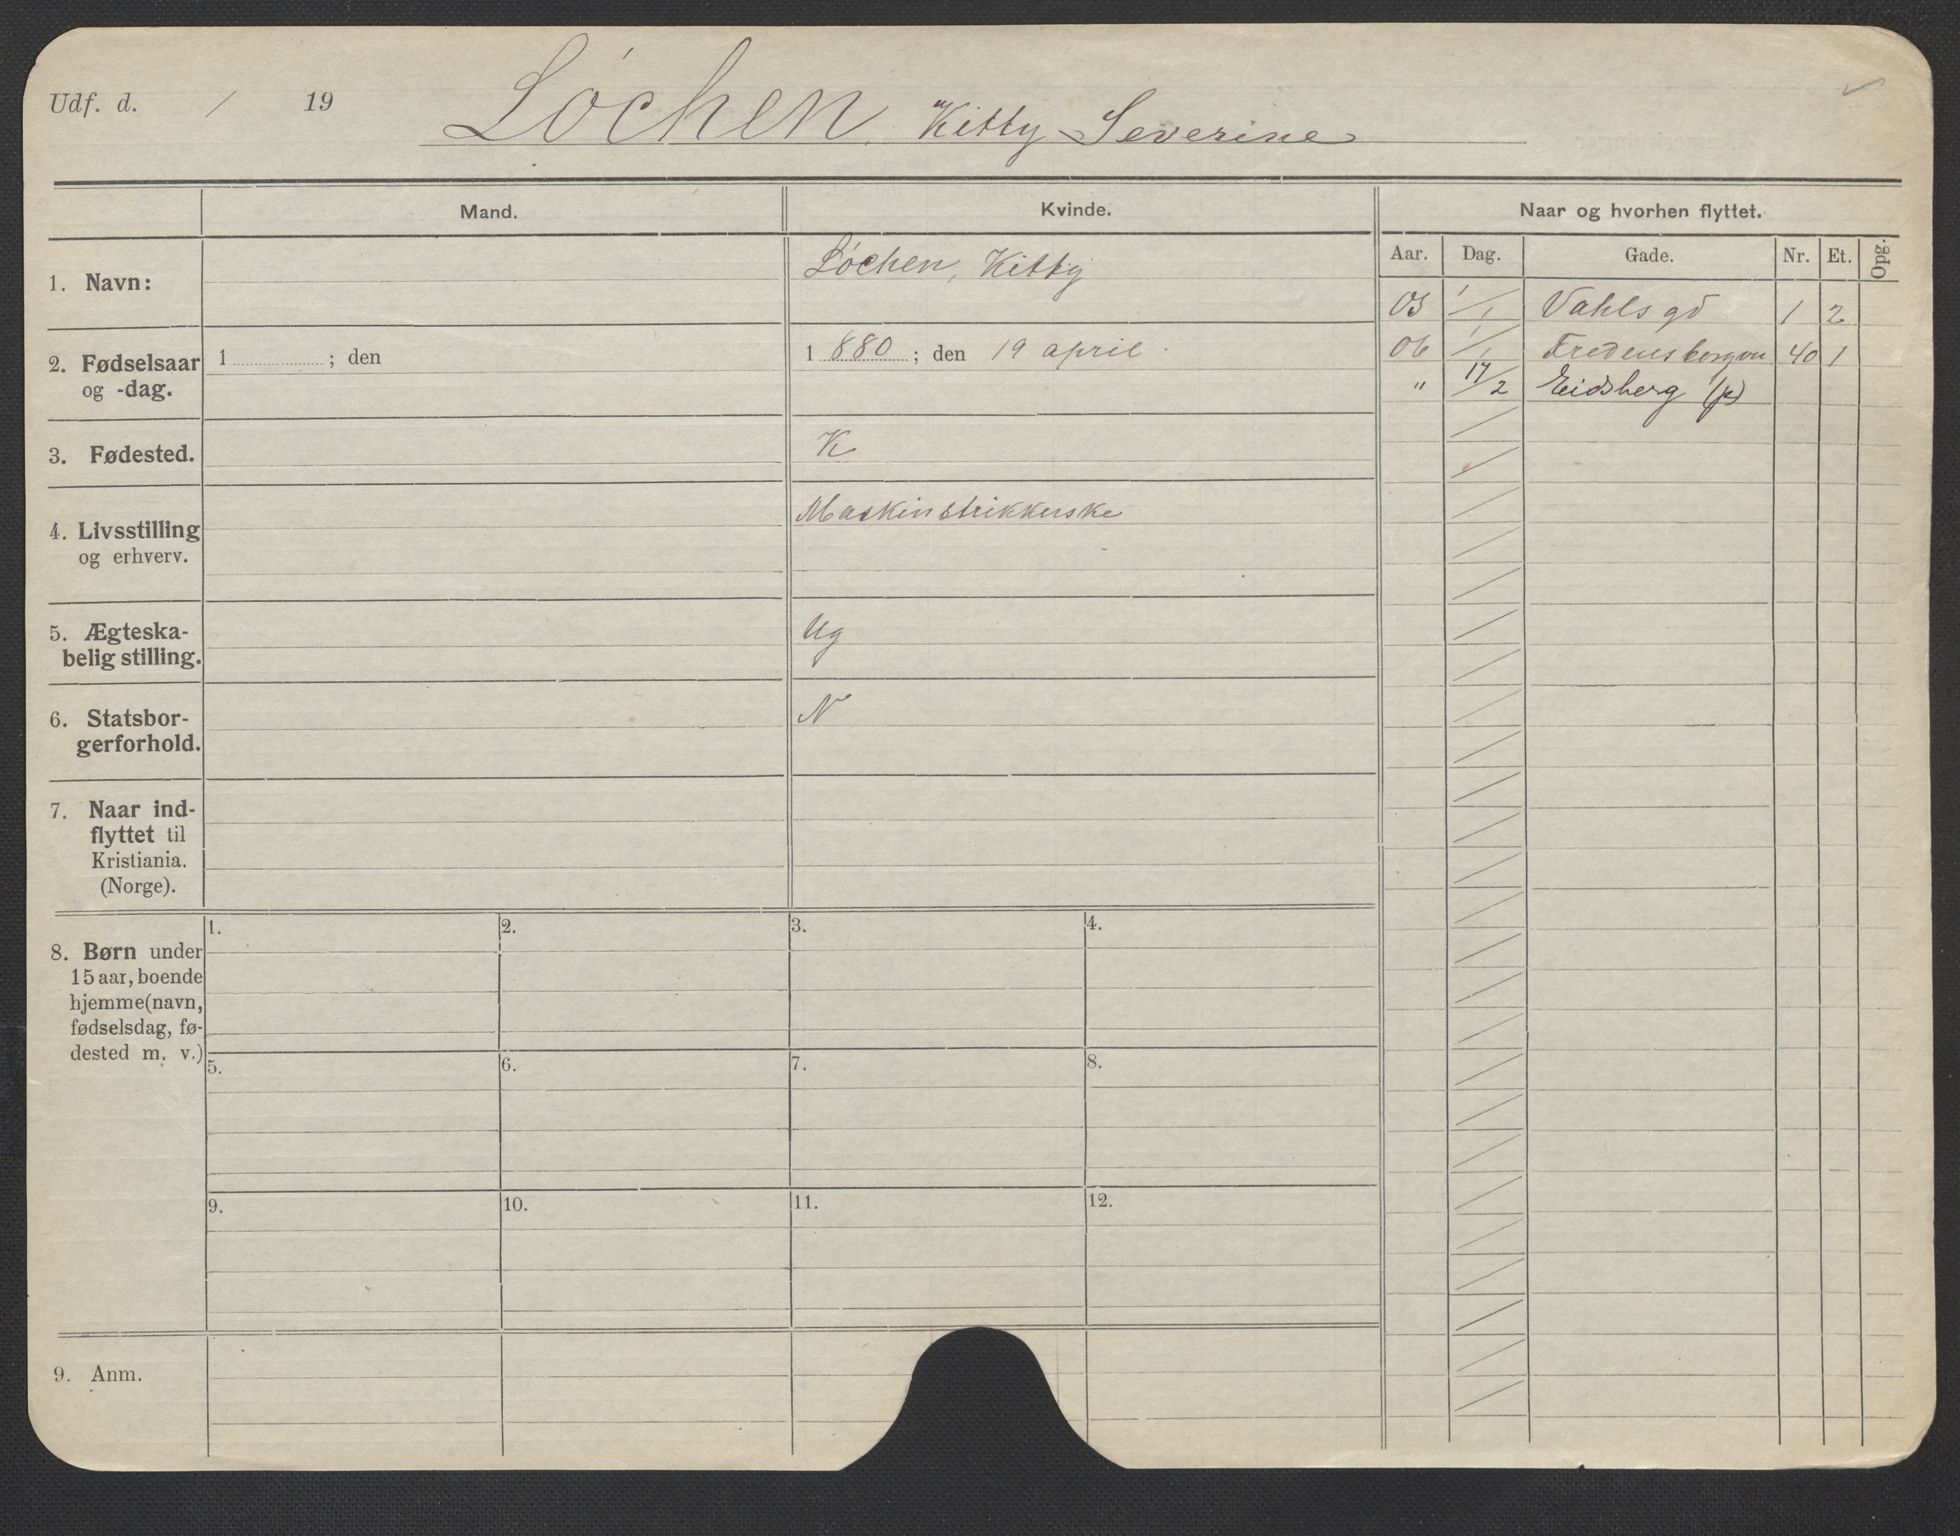 Udf. d. / 19
Løchen, Kitty Severine
Mand.
Kvinde.
Naar og hvorhen flyttet.
Aar. Dag. Gade. Nr. Et. Opg.
1. Navn:
Løchen, Kitty
2. Fødselsaar
og -dag.
1 ; den
1 880 ; den 19 april.
3. Fødested.
K
4. Livsstilling
og erhverv.
Maskinstrikkerske
5. Ægteska-
belig stilling.
Ug
6. Statsbor-
gerforhold.
N
7. Naar ind-
flyttet til
Kristiania.
(Norge).
8. Børn under
15 aar, boende
hjemme (navn,
fødselsdag, fø-
dested m. v.)
1. 2. 3. 4.
5. 6. 7. 8.
9. 10. 11. 12.
9. Anm.
1/1 Vahls gd 1 2
06 1/1 Fredensborgvn 40 1
" 17/2 Eidsberg